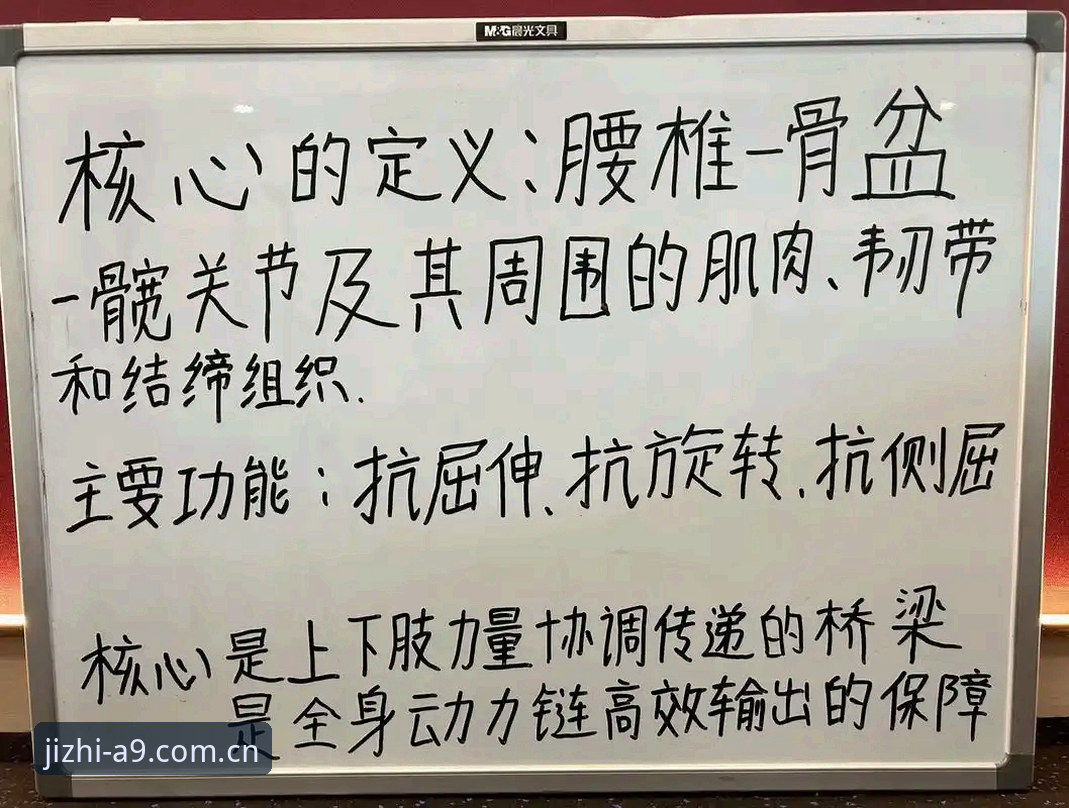 M&G晨光文具
核心的定义:腰椎-骨盆
-髋关节及其周围的肌肉、韧带
和结缔组织.
主要功能:抗屈伸、抗旋转、抗侧屈
核心是上下肢力量协调传递的桥梁
是全身动力链高效输出的保障
jizhi-a9.com.cn